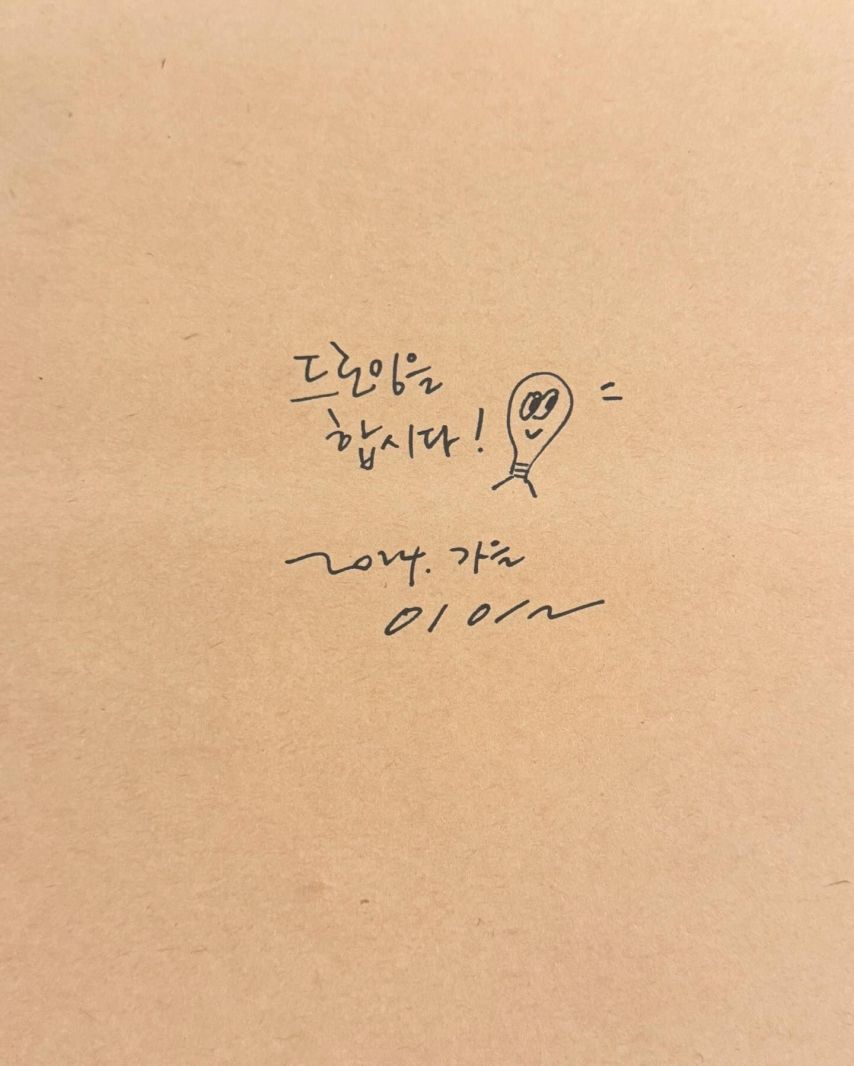 드로잉을
합시다!
2024. 가을